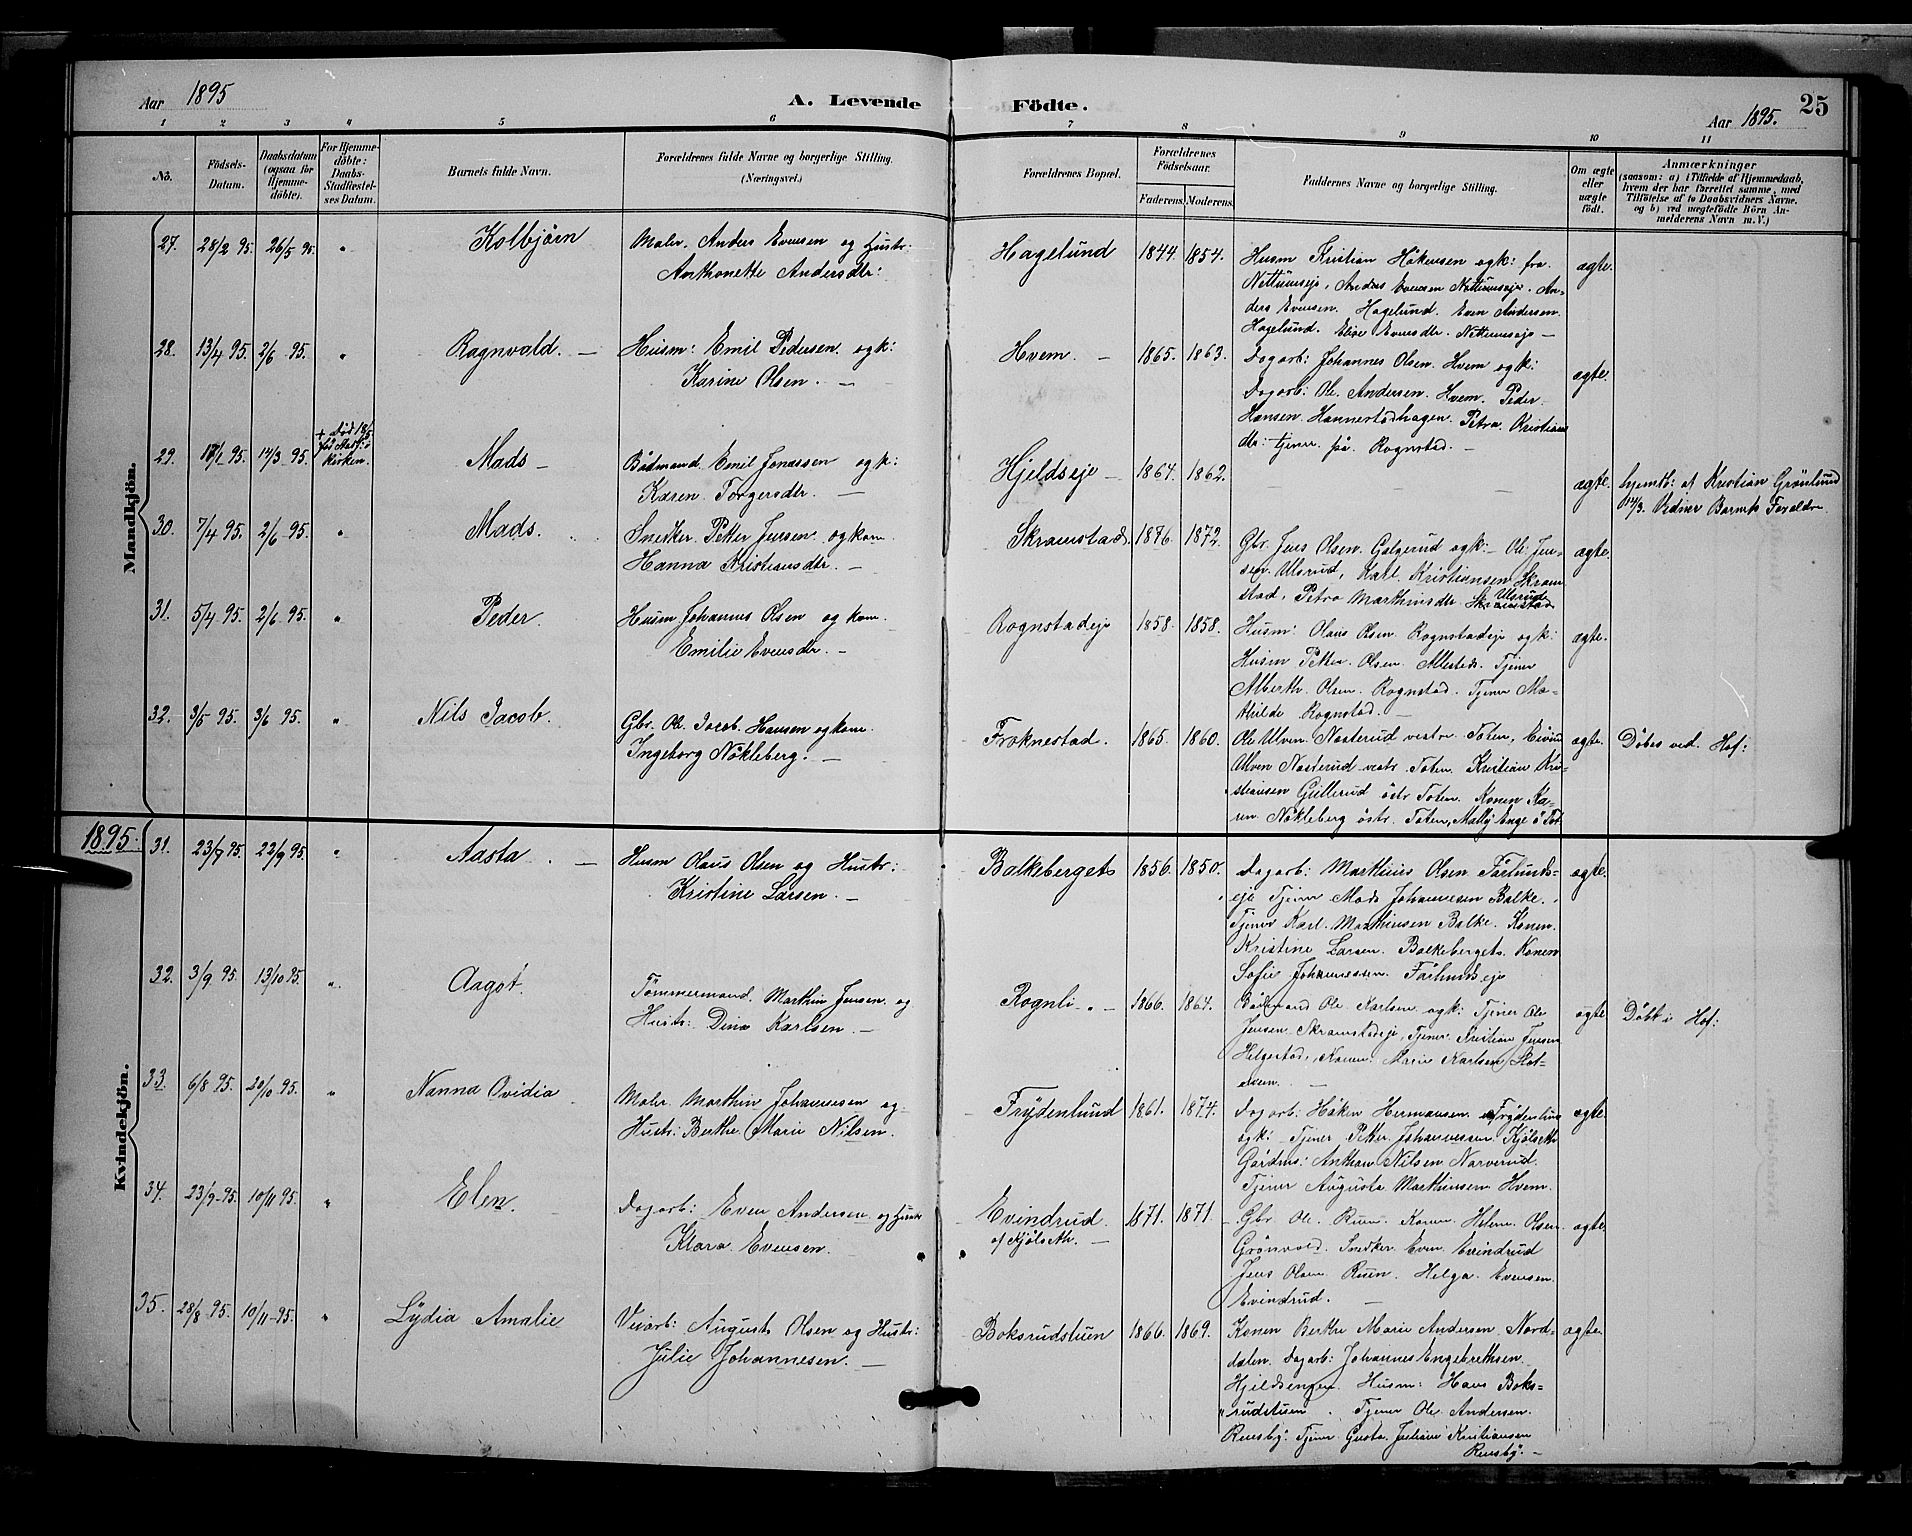 Aar 1895
A. Levende Födte.
25
Aar 1895.
1 2 3 4 5 6 7 8 9 10 11
No.
Födsels-Datum.
Daabsdatum (ogsaa for Hjemmedöbte).
For Hjemmedöbte: Daabs-Stadfæstelses Datum.
Barnets fulde Navn.
Forældrenes fulde Navne og borgerlige Stilling.
(Næringsvei.)
Forældrenes Bopæl.
Forældrenes Födselsaar.
Faderens. Moderens.
Faddernes Navne og borgerlige Stilling.
Om ægte eller uægte födt.
Anmærkninger
(saasom: a) i Tilfælde af Hjemmedaab, hvem der har forrettet samme, med Tilföielse af to Daabsvidners Navne. og b) ved uægtefödte Börn Anmelderens Navn m. V.)
Mandkjön.
27. 28/2 95. 26/5 95. " Kolbjörn
Maler. Anders Evensen og Hustr:
Anthonette Andersdtr:
Hagelund 1844. 1854.
Husm Kristian Håkensen ogk: fra
Nettumseje, Anders Evensen Nettumseje. An-
ders Evensen. Hagelund. Even Andersen.
Hagelund. Evensdtr. Nettumseje —
ægte.
28. 13/4 95. 2/6 95. " Ragnvald. —
Husm: Emil Pedersen. ogk:
Karine Olsen. —
Hvem. — 1865. 1863.
Dagarb: Johannes Olsen. Hvem ogk:
Dagarb: Ole. Andersen. Hvem. Peder.
Hansen. Hannestadhagen. Petra Kristians
dtr: tjener på Rognstad. —
ægte.
29. 95. 14/3 95. + död 18/5 Kirken. Mads —
Bådmand. Emil Jonassen ogk:
Karen. Torgersdtr. —
Hjeldseje — 1864. 1862. — —
ægte. hjemdb: af Kristian Grönlund
14/3. Vidner Barnets Foreldre
30. 7/4 95. 2/6 95. " Mads.
Snedker. Petter Jensen ogkone
Hanna Kristiansdtr. —
Skramstad. 1876. 1872.
Gbr. Jens Olsen. Galgerud ogk: — Ole Jen-
sen. Ulsrud, Karl Kristiansen Skram
stad, Petra Marthinsdtr Ulsrud
ægte.
31. 5/4 95. 2/6 95. " Peder.
Husm Johannes Olsen og kone
Emilie Evensdtr. —
Rognstadeje 1858. 1858.
Husm: Olaus Olsen. Rognstadeje ogk:
Husm Petter. Olsen. Allestad. Tjener
Alberth. Olsen. Rognstad. Tjener Ma-
thilde Rognstad. —
ægte.
32. 3/5 95. 3/6 95. " Nils Jacob.
Gbr. Ole Jacob. Hansen ogkone.
Ingeborg Nökleberg. —
Froknestad. 1865. 1860.
Ole Ulven. Nosterud vestr. Toten, Eivind
Ulven Nosterud vestr. Toten. Kristian Kri-
stiansen Gullerud östr Toten. Konen Ka-
ren Nökleberg östr. Toten, Mally Enge ö Tot
ægte. Döbes ved. Hof:
1895.
Kvindekjön.
31. 23/7 95. 22/9 95. " Aasta. —
Husm Olaus Olsen og Hustr:
Kristine Larsen. —
Balkebergets 1856. 1850.
Dagarb: Marthinus Olsen Fårlunds-
eje Tjener Mads Johannesen Balke.
Tjener Karl. Marthinsen Balke. Konen.
Kristine Larsen. Balkebergets. Konen
Sofie Johannessen. Fårlundseje
ægte.
32. 3/9 95. 13/10 95. " Aagot.
Tömmermand. Marthin Jensen og
Hustr: Dina Karlsen. —
Rognli. — 1866. 1864.
Bådmand Ole Karlsen ogk: Tjener Ole
Jensen. Skramstadeje, Tjener Kristian Jensen
Helgestad, Konen: Marie Karlsen
ægte Döbt i Hof:
33. 6/8 95. 20/10 95. " Nanna Ovidia
Maler Marthin Johannesen og
Hustr: Berthe. Marie Nilsen.
Frydenlund 1861. 1874.
Dagarb: Håken Hermansen Frydenlund
ogk: Tjener Petter Johannessen Kjölseth
Gårdm: Anthon Nilsen Narverud.
Tjener Augusta Marthinsen Hvem.
ægte
34. 23/9-95. 10/11 95. " Elen.
Dagarb: Even Andersen og Hustr
Klara Evensen.
Evindrud. 1871. 1871.
af Kjölseth. —
Gbr. Ole. Ruen. Konen Helene Olsen.
Grönvold. Snedker Even. Evindrud
Jens Olsen Ruen. Helga. Evensen.
Evindrud. —
ægte.
35. 28/8-95. 10/11-95. " Lydia Amalie
Veiarb: August Olsen og Hustr:
Julie Johannesen. —
Boksrudstuen 1866. 1869.
Konen Berthe Marie Andersen. Nord-
dalen. Dagarb: Johannes Engebrethsen.
Hjeldsengen. Husm: Hans Boks-
rudstuen. Tjener Ole Andersen.
Rensby. Tjener Gusta Juliane Kristiansen
Rensby. —
ægte.